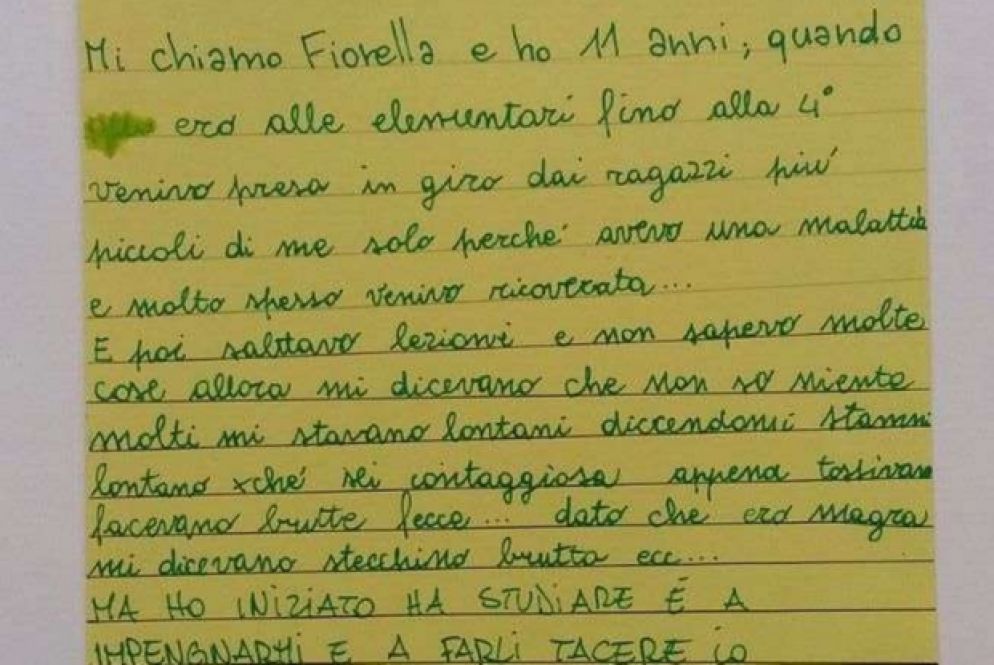 Mi chiamo Fiorella e ho 11 anni, quando
ero alle elementari fino alla 4°
venivo presa in giro dai ragazzi più
piccoli di me solo perche' avevo una malattia
e molto spesso venivo ricoverata...
E poi saltavo lezioni e non sapevo molte
cose allora mi dicevano che non so niente
molti mi stavano lontani diccendomi stammi
lontano xché sei contaggiosa appena tossivan
facevano brutte fecce... dato che ero magra
mi dicevano stecchino brutta ecc...
MA HO INIZIATO HA STUDIARE É A
IMPENGNARMI E A FARLI TACERE io